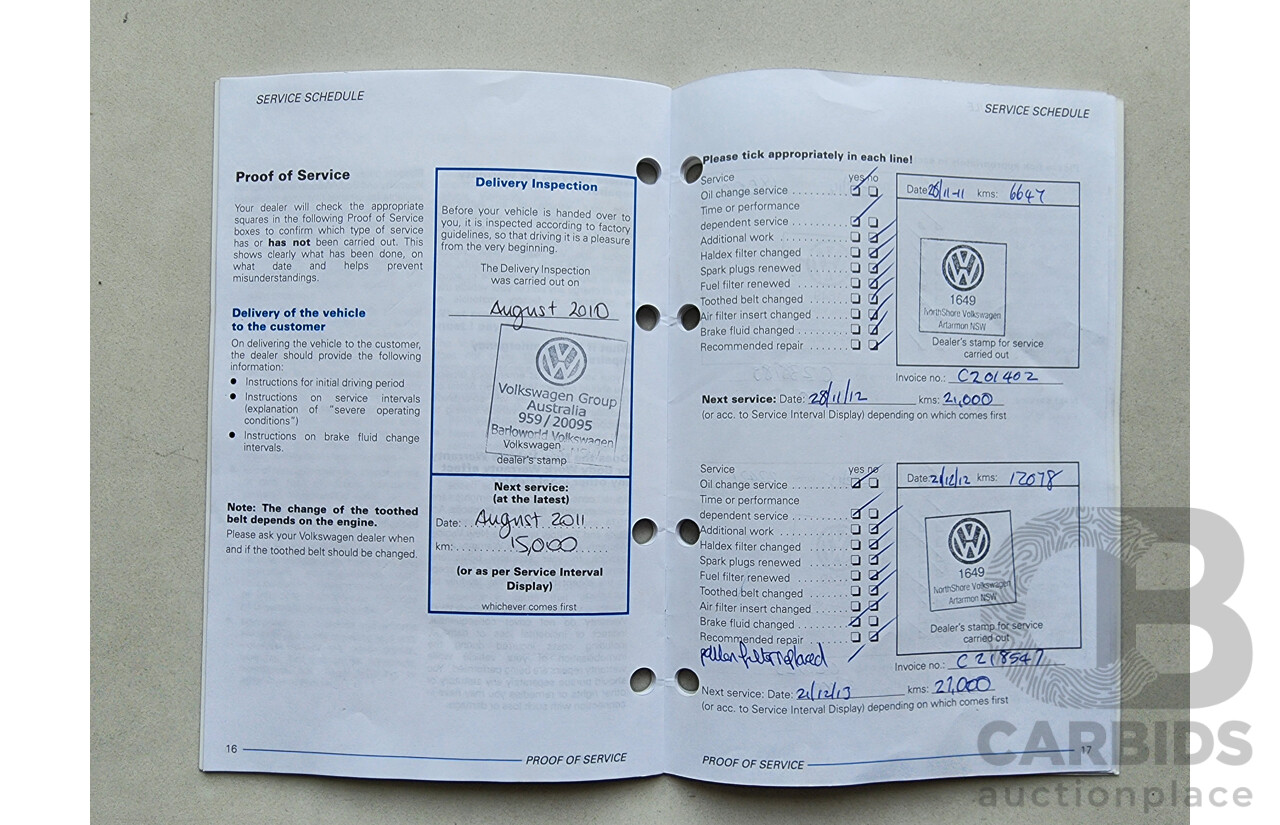 SERVICE SCHEDULE
Proof of Service
Your dealer will check the appropriate
squares in the following Proof of Service
boxes to confirm which type of service
has or has not been carried out. This
shows clearly what has been done, on
what date and helps prevent
misunderstandings.
Delivery of the vehicle
to the customer
On delivering the vehicle to the customer,
the dealer should provide the following
information:
● Instructions for initial driving period
● Instructions on service intervals
(explanation of "severe operating
conditions")
● Instructions on brake fluid change
intervals.
Note: The change of the toothed
belt depends on the engine.
Please ask your Volkswagen dealer when
and if the toothed belt should be changed.
Delivery Inspection
Before your vehicle is handed over to
you, it is inspected according to factory
guidelines, so that driving it is a pleasure
from the very beginning.
The Delivery Inspection
was carried out on
August 2010
Volkswagen Group
Australia
959/20095
Barloworld Volkswagen
Volkswagen
dealer's stamp
Next service:
(at the latest)
Date: August 2011
km: 15,000
(or as per Service Interval
Display)
whichever comes first
16
PROOF OF SERVICE
SERVICE SCHEDULE
Please tick appropriately in each line!
Service yes no
Oil change service
Time or performance
dependent service
Additional work
Haldex filter changed
Spark plugs renewed
Fuel filter renewed
Toothed belt changed
Air filter insert changed
Brake fluid changed
Recommended repair
Date: 28/11-11 kms: 6647
1649
NorthShore Volkswagen
Artarmon NSW
Dealer's stamp for service
carried out
Invoice no.: C201402
Next service: Date: 28/11/12 kms: 21,000
(or acc. to Service Interval Display) depending on which comes first
Service yes no
Oil change service
Time or performance
dependent service
Additional work
Haldex filter changed
Spark plugs renewed
Fuel filter renewed
Toothed belt changed
Air filter insert changed
Brake fluid changed
Recommended repair
pollen filter replaced
Date: 21/12/12 kms: 12078
1649
NorthShore Volkswagen
Artarmon NSW
Dealer's stamp for service
carried out
Invoice no.: C218547
Next service: Date: 21/12/13 kms: 27,000
(or acc. to Service Interval Display) depending on which comes first
PROOF OF SERVICE
17
CARBIDS
auctionplace